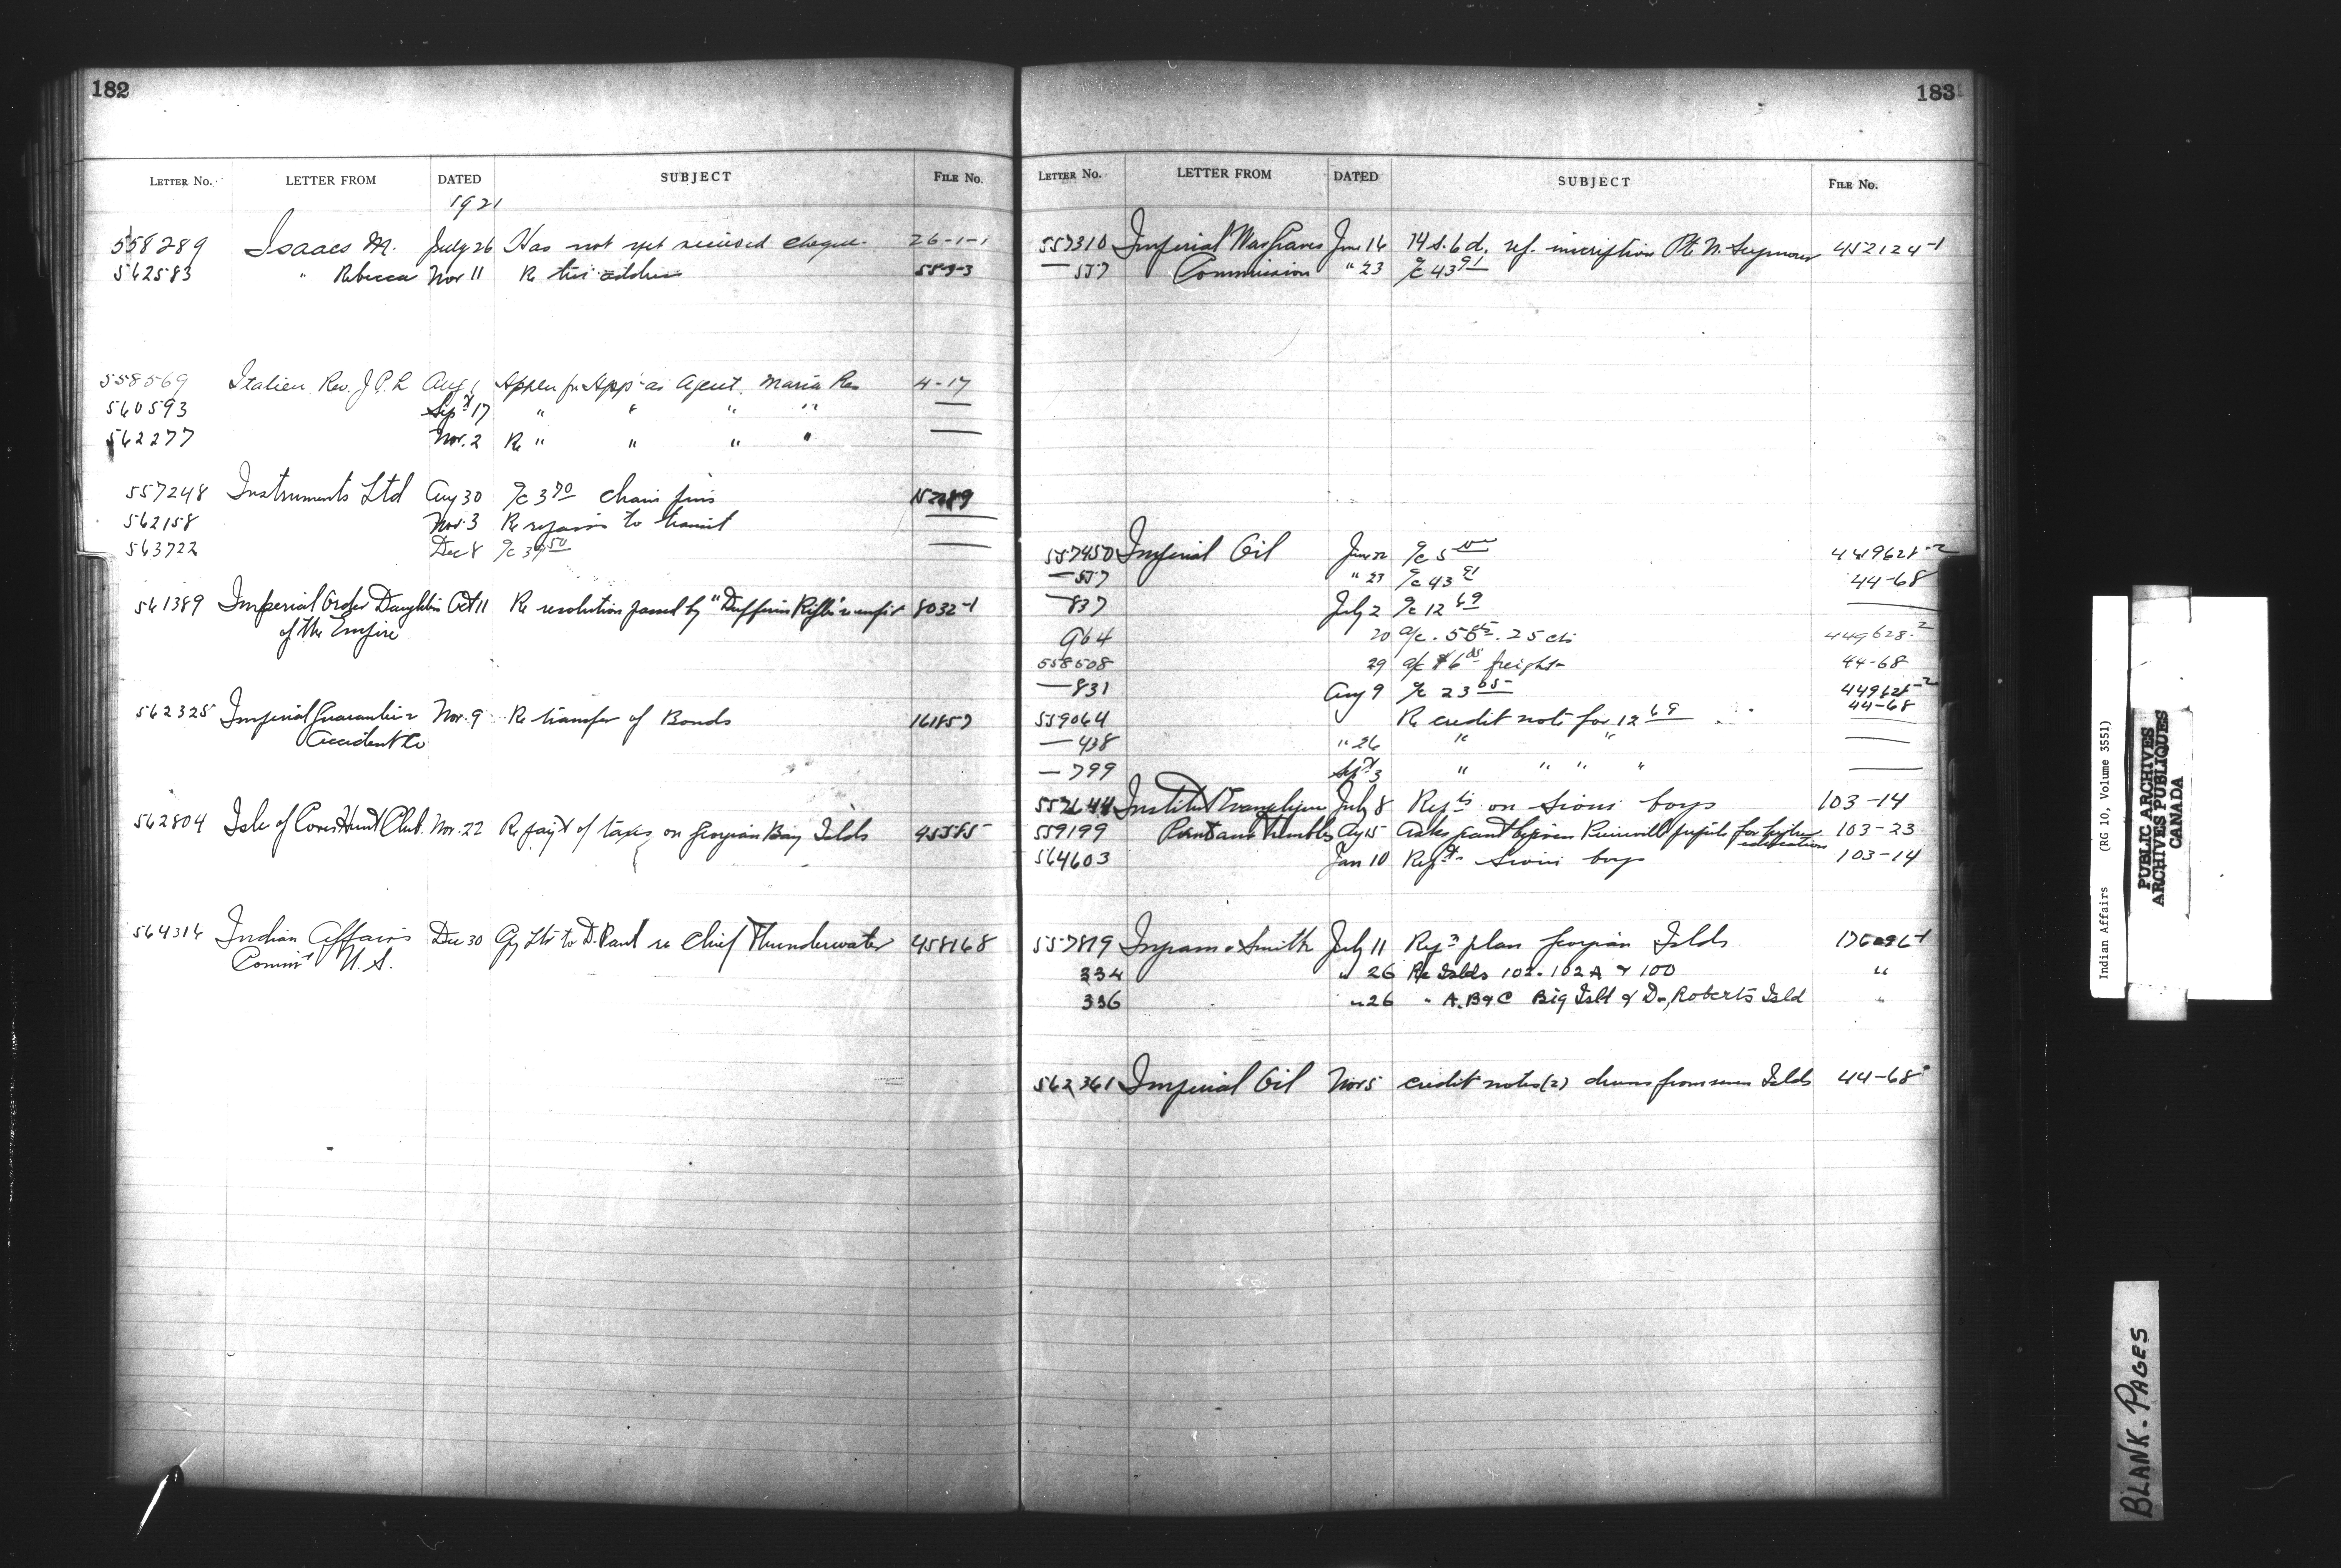 182
LETTER No. LETTER FROM DATED SUBJECT FILE No.
1921
558289 Isaacs M. July 26 Has not yet received cheque. 26-1-1
562583 " Rebecca Nov 11 Re her address
558569 Italien Rev. J.P.R. Aug 1 Appln for App as Agent. Maria Res 4-17
560593 Sept 17 " " " " —
562277 Nov. 2 Re " " " " —
557248 Instruments Ltd Aug 30 a/c 3 70 chain pins
562158 Nov. 3 Re repairs to transit —
563722 Dec 8 a/c 39 50 —
561389 Imperial Order Daughters Oct 11 Re resolution passed by "Dufferin Rifles" 8032-1
of the Empire
562325 Imperial Guarantee & Nov. 9 Re transfer of Bonds 161857
Accident Co
562804 Isle of Coves Hunt Club. Nov. 22 Re pay't of taxes on Georgian Bay Islds 45585
564314 Indian Affairs Dec 30 Cpy ltr to D. Paul re Chief Thunderwater 458168
Comm't U.S.
183
LETTER No. LETTER FROM DATED SUBJECT FILE No.
557310 Imperial War Graves June 16 14 s. 6 d. ref. inscription Pte W. Seymour 452124-1
— 557 Commission " 23 a/c 43 91
557450 Imperial Oil June 22 a/c 5 449628-2
— 557 " 23 a/c 43 91 44-68
— 837 July 2 a/c 12 69 —
964 20 a/c. 25 cts 449628-2
558508 29 a/c $6 freight 44-68
— 831 Aug 9 a/c 23 65 449628-2
44-68
559064 Re credit note for 12 69
— 438 " 26 " " —
— 799 Sept 3 " " " " —
Institut Evangelique July 8 on Sioui boys 103-14
559199 Pointe aux Trembles Ag 15 Asks grant be given pupils for higher education 103-23
564603 Jan 10 Sioui boys 103-14
557819 Ingram & Smith July 11 plan Georgian Islds
334 " 26 Re Islds 102-102A & 100 "
336 " 26 " A. B & C Big Isld & Dr. Roberts Isld "
562361 Imperial Oil Nov 5 credit notes (2) drums from Islds 44-68
Indian Affairs (RG 10, Volume 3551)
PUBLIC ARCHIVES
ARCHIVES PUBLIQUES
CANADA
BLANK - PAGES